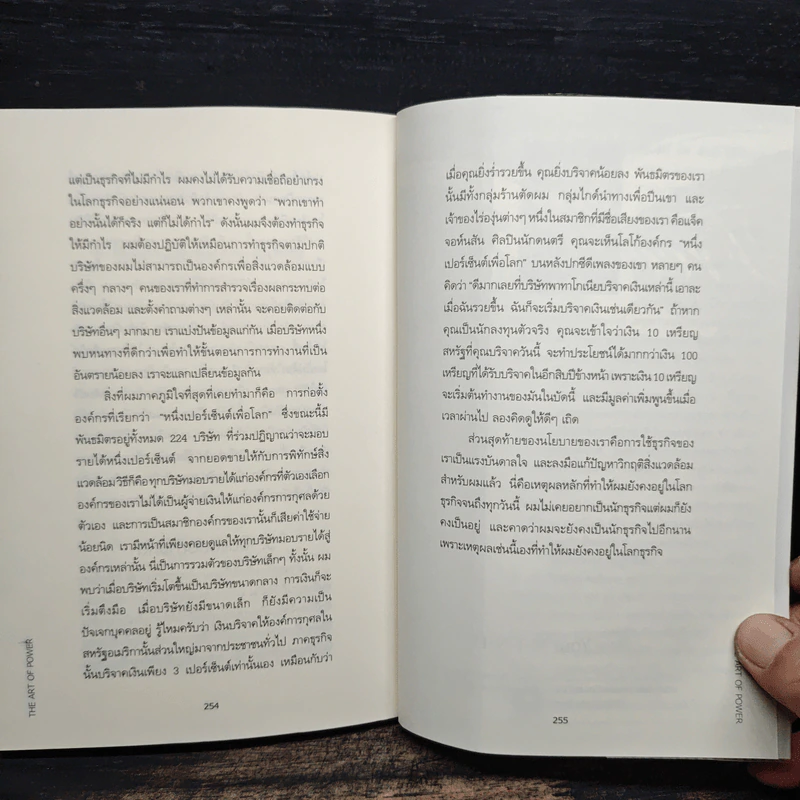 แต่เป็นธุรกิจที่ไม่มีกำไร ผมคงไม่ได้รับความเชื่อถือยำเกรง
ในโลกธุรกิจอย่างแน่นอน พวกเขาคงพูดว่า “พวกเขาทำ
อย่างนั้นได้ก็จริง แต่ก็ไม่ได้กำไร” ดังนั้นผมจึงต้องทำธุรกิจ
ให้มีกำไร ผมต้องปฏิบัติให้เหมือนการทำธุรกิจตามปกติ
บริษัทของผมไม่สามารถเป็นองค์กรเพื่อสิ่งแวดล้อมแบบ
ครึ่งๆ กลางๆ คนของเราที่ทำการสำรวจเรื่องผลกระทบต่อ
สิ่งแวดล้อม และตั้งคำถามต่างๆ เหล่านั้น จะคอยติดต่อกับ
บริษัทอื่นๆ มากมาย เราแบ่งปันข้อมูลแก่กัน เมื่อบริษัทหนึ่ง
พบหนทางที่ดีกว่าเพื่อทำให้ขั้นตอนการการทำงานที่เป็น
อันตรายน้อยลง เราจะแลกเปลี่ยนข้อมูลกัน
สิ่งที่ผมภาคภูมิใจที่สุดที่เคยทำมาก็คือ การก่อตั้ง
องค์กรที่เรียกว่า “หนึ่งเปอร์เซ็นต์เพื่อโลก” ซึ่งขณะนี้มี
พันธมิตรอยู่ทั้งหมด 224 บริษัท ที่ร่วมปฏิญาณว่าจะมอบ
รายได้หนึ่งเปอร์เซ็นต์ จากยอดขายให้กับการพิทักษ์สิ่ง
แวดล้อม วิธีก็คือทุกบริษัทมอบรายได้แก่องค์กรที่ตัวเองเลือก
องค์กรของเราไม่ได้เป็นผู้จ่ายเงินให้แก่องค์การกุศลด้วย
ตัวเอง และการเป็นสมาชิกองค์กรของเรานั้นก็เสียค่าใช้จ่าย
น้อยนิด เรามีหน้าที่เพียงคอยดูแลให้ทุกบริษัทมอบรายได้สู่
องค์กรเหล่านั้น นี่เป็นการรวมตัวของบริษัทเล็กๆ ทั้งนั้น ผม
พบว่าเมื่อบริษัทเริ่มโตขึ้นเป็นบริษัทขนาดกลาง การเงินก็จะ
เริ่มตึงมือ เมื่อบริษัทยังมีขนาดเล็ก ก็ยังมีความเป็น
ปัจเจกบุคคลอยู่ รู้ไหมครับว่า เงินบริจาคให้องค์การกุศลใน
สหรัฐอเมริกานั้นส่วนใหญ่มาจากประชาชนทั่วไป ภาคธุรกิจ
นั้นบริจาคเงินเพียง 3 เปอร์เซ็นต์เท่านั้นเอง เหมือนกับว่า
THE ART OF POWER
254
เมื่อคุณยิ่งร่ำรวยขึ้น คุณยิ่งบริจาคน้อยลง พันธมิตรของเรา
นั้นมีทั้งกลุ่มร้านตัดผม กลุ่มไกด์นำทางเพื่อปีนเขา และ
เจ้าของไร่องุ่นต่างๆ หนึ่งในสมาชิกที่มีชื่อเสียงของเรา คือแจ็ค
จอห์นสัน ศิลปินนักดนตรี คุณจะเห็นโลโก้องค์กร “หนึ่ง
เปอร์เซ็นต์เพื่อโลก” บนหลังปกซีดีเพลงของเขา หลายๆ คน
คิดว่า “ดีมากเลยที่บริษัทพาทาโกเนียบริจาคเงินเหล่านี้ เอาละ
เมื่อฉันรวยขึ้น ฉันก็จะเริ่มบริจาคเงินเช่นเดียวกัน” ถ้าหาก
คุณเป็นนักลงทุนตัวจริง คุณจะเข้าใจว่าเงิน 10 เหรียญ
สหรัฐที่คุณบริจาควันนี้ จะทำประโยชน์ได้มากกว่าเงิน 100
เหรียญที่ได้รับบริจาคในอีกสิบปีข้างหน้า เพราะเงิน 10 เหรียญ
จะเริ่มต้นทำงานของมันในบัดนี้ และมีมูลค่าเพิ่มพูนขึ้นเมื่อ
เวลาผ่านไป ลองคิดดูให้ดีๆ เถิด
ส่วนสุดท้ายของนโยบายของเราคือการใช้ธุรกิจของ
เราเป็นแรงบันดาลใจ และลงมือแก้ปัญหาวิกฤติสิ่งแวดล้อม
สำหรับผมแล้ว นี่คือเหตุผลหลักที่ทำให้ผมยังคงอยู่ในโลก
ธุรกิจจนถึงทุกวันนี้ ผมไม่เคยอยากเป็นนักธุรกิจแต่ผมก็ยัง
คงเป็นอยู่ และคาดว่าผมจะยังคงเป็นนักธุรกิจไปอีกนาน
เพราะเหตุผลเช่นนี้เองที่ทำให้ผมยังคงอยู่ในโลกธุรกิจ
ART OF POWER
255